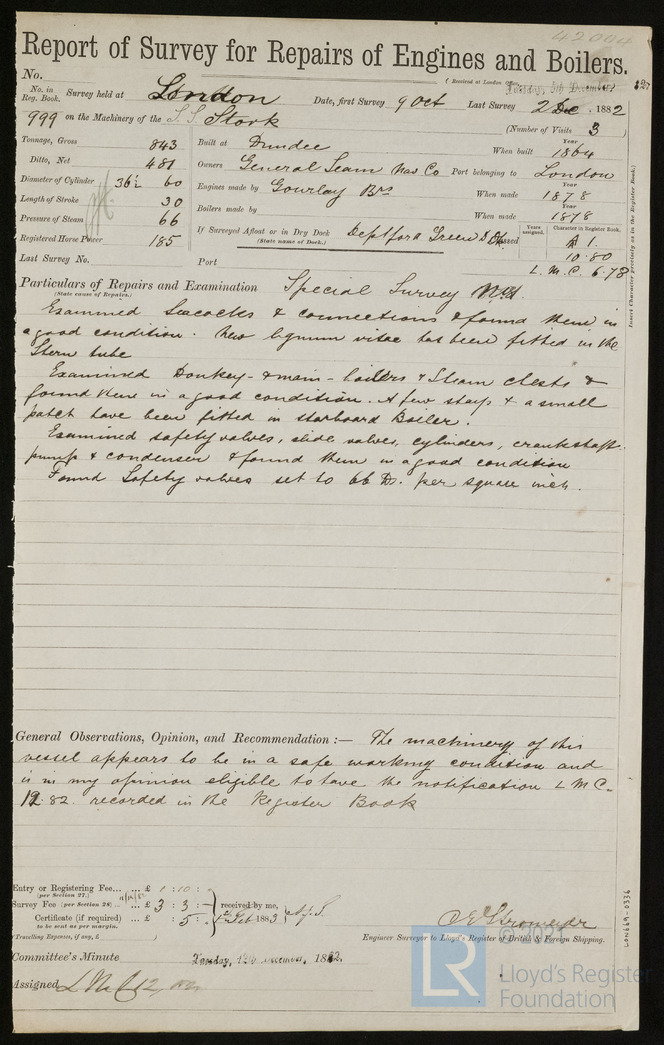 42004
Report of Survey for Repairs of Engines and Boilers.
No.
(Received at London Office Tuesday, 5th December 1882
No. in Reg. Book. Survey held at London Date, first Survey 9 Oct Last Survey 2 Dec 1882
(Number of Visits 3 )
999 on the Machinery of the S.S. Stork
Tonnage, Gross 843
Ditto, Net 481
Diameter of Cylinder 36½ 60
Length of Stroke 30
Pressure of Steam 66
Registered Horse Power 185
Built at Dundee When built Year 1864
Owners General Steam Nav Co Port belonging to London
Engines made by Gourlay Brs When made Year 1878
Boilers made by When made Year 1878
If Surveyed Afloat or in Dry Dock Deptford Green D Dk
(State name of Dock.)
Years assigned. Character in Register Book.
A 1.
10.80
L.M.C. 6.78
Insert Character precisely as in the Register Book.)
Last Survey No. Port
Particulars of Repairs and Examination Special Survey No 1.
(State cause of Repairs.)
Examined Seacocks & connections & found them in
a good condition. New lignum vitae has been fitted in the
Stern tube
Examined Donkey- & main- boilers & Steam chests &
found them in a good condition. A few stays & a small
patch have been fitted in starboard Boiler.
Examined safety valves, slide valves, cylinders, crankshaft
pumps & condenser & found them in a good condition
Found Safety valves set to 66 lbs. per square inch.
General Observations, Opinion, and Recommendation :— The machinery of this
vessel appears to be in a safe working condition and
is in my opinion eligible to have the notification L M C.
12.82. recorded in the Register Book
Entry or Registering Fee... ... £ 1 : 10 :
(per Section 27.)
Survey Fee (per Section 28) ... £ 3 : 3 :
Certificate (if required) ... £ : 5 :
to be sent as per margin.
(Travelling Expenses, if any, £ )
received by me,
1883
Engineer Surveyor to Lloyd's Register of British & Foreign Shipping.
Committee's Minute Tuesday, 12th December, 1882.
Assigned L M C 12,82
LON669-0336
LR
© 2021
Lloyd's Register
Foundation